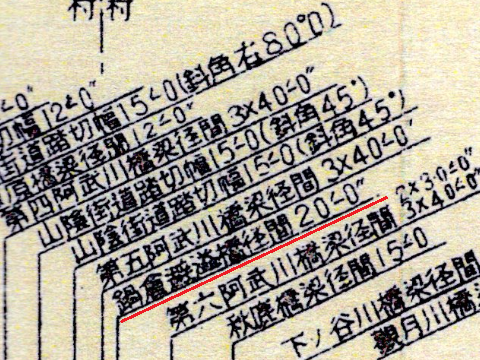 村村
∠0"
切幅12∠0"
街道踏切幅15∠0(斜角右80°0)
橋梁径間12∠0"
第四阿武川橋梁径間3×40∠0"
山陰街道踏切幅15∠0(斜角45°)
山陰街道踏切幅15∠0(斜角45°)
第五阿武川橋梁径間3×40∠0"
橋径間20∠0"
第六阿武川橋梁径間 2×30∠0" 3×40∠0"
橋梁径間15∠0
下ノ谷川橋梁径間
観月川橋